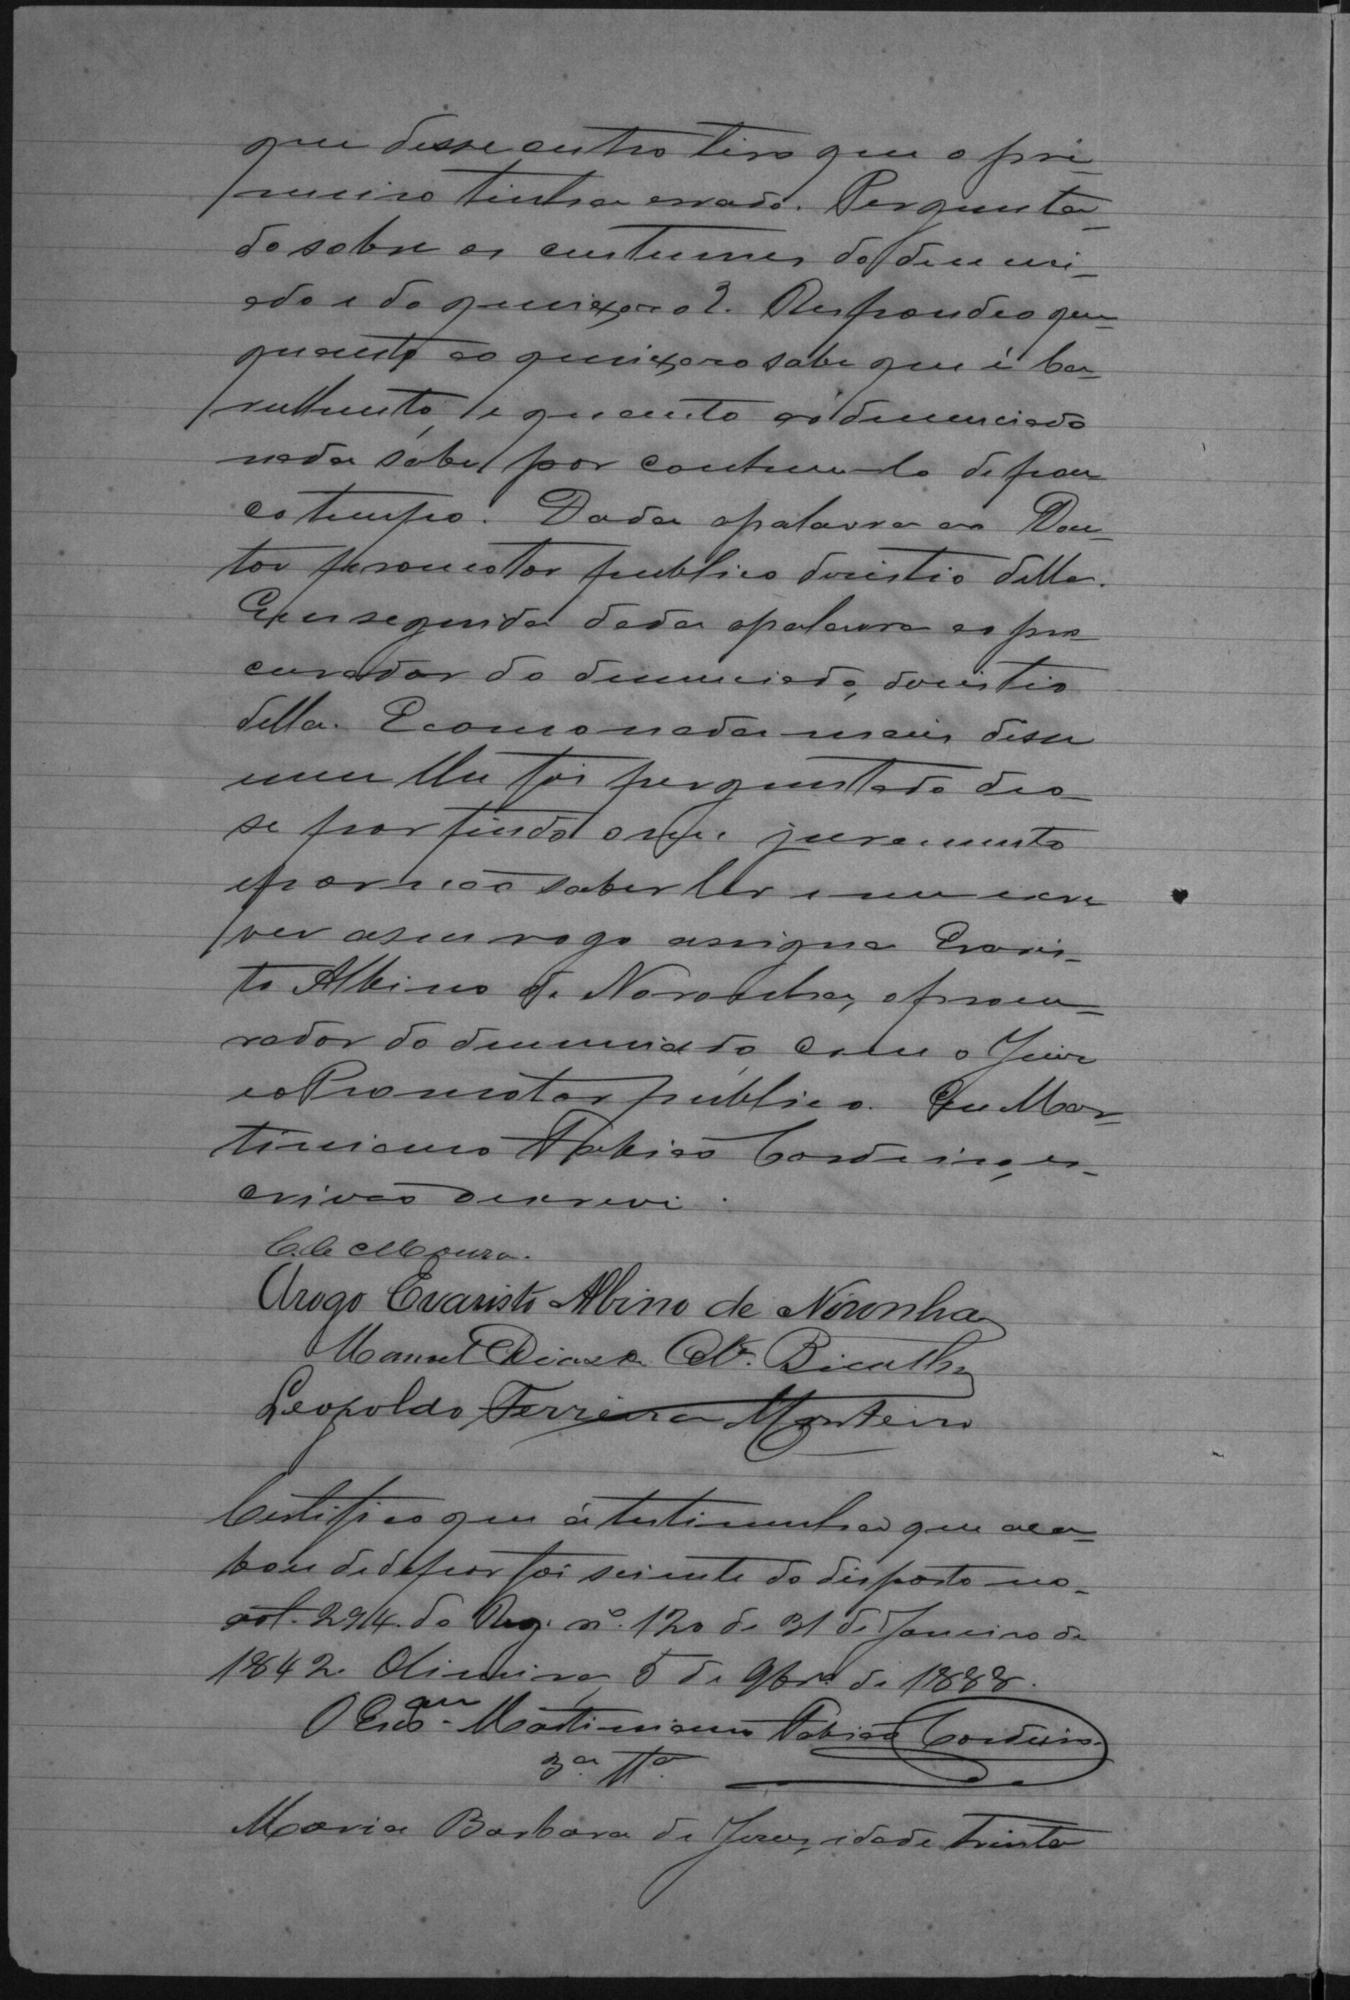 que desse outro tiro que o pri-
meiro tinha errado. Pergunta-
do sobre os custumes do denunci-
ado e do queixoso? Respondeo que
quanto ao queixoso sabe que é ba-
rulhento, e quanto ao denunciado
nada sabe por conhecel-o de pou
co tempo. Dada a palavra ao Dou-
tor promotor publico desistio della.
Em seguida dada a palavra ao pro
curador do denunciado, desistio
della. E como nada mais disse
nem lhe foi perguntado deo-
se por findo o seu juramento
e por não saber ler e nem escre
ver a seu rogo assigna Evaris-
to Albino de Noronha, o procu-
rador do denunciado com o Juiz
e o Promotor público. Eu Mar-
timiano Fabião Cordeiro, es-
crivão o escrevi.
C. de Moura.
Arogo Evaristo Albino de Noronha
Manoel Bicalho
Leopoldo Ferreira Monteiro
Certifico que á testimunha que aca-
bou de depor foi sciente do disposto no
art. 294. do Reg. nº. 120 de 31 de Janeiro de
1842. Oliveira, 5 de 9brº de 1888.
O Escam. Martimiano Fabião Cordeiro.
3ª Tª
Maria Barbara de Jesus, idade trinta